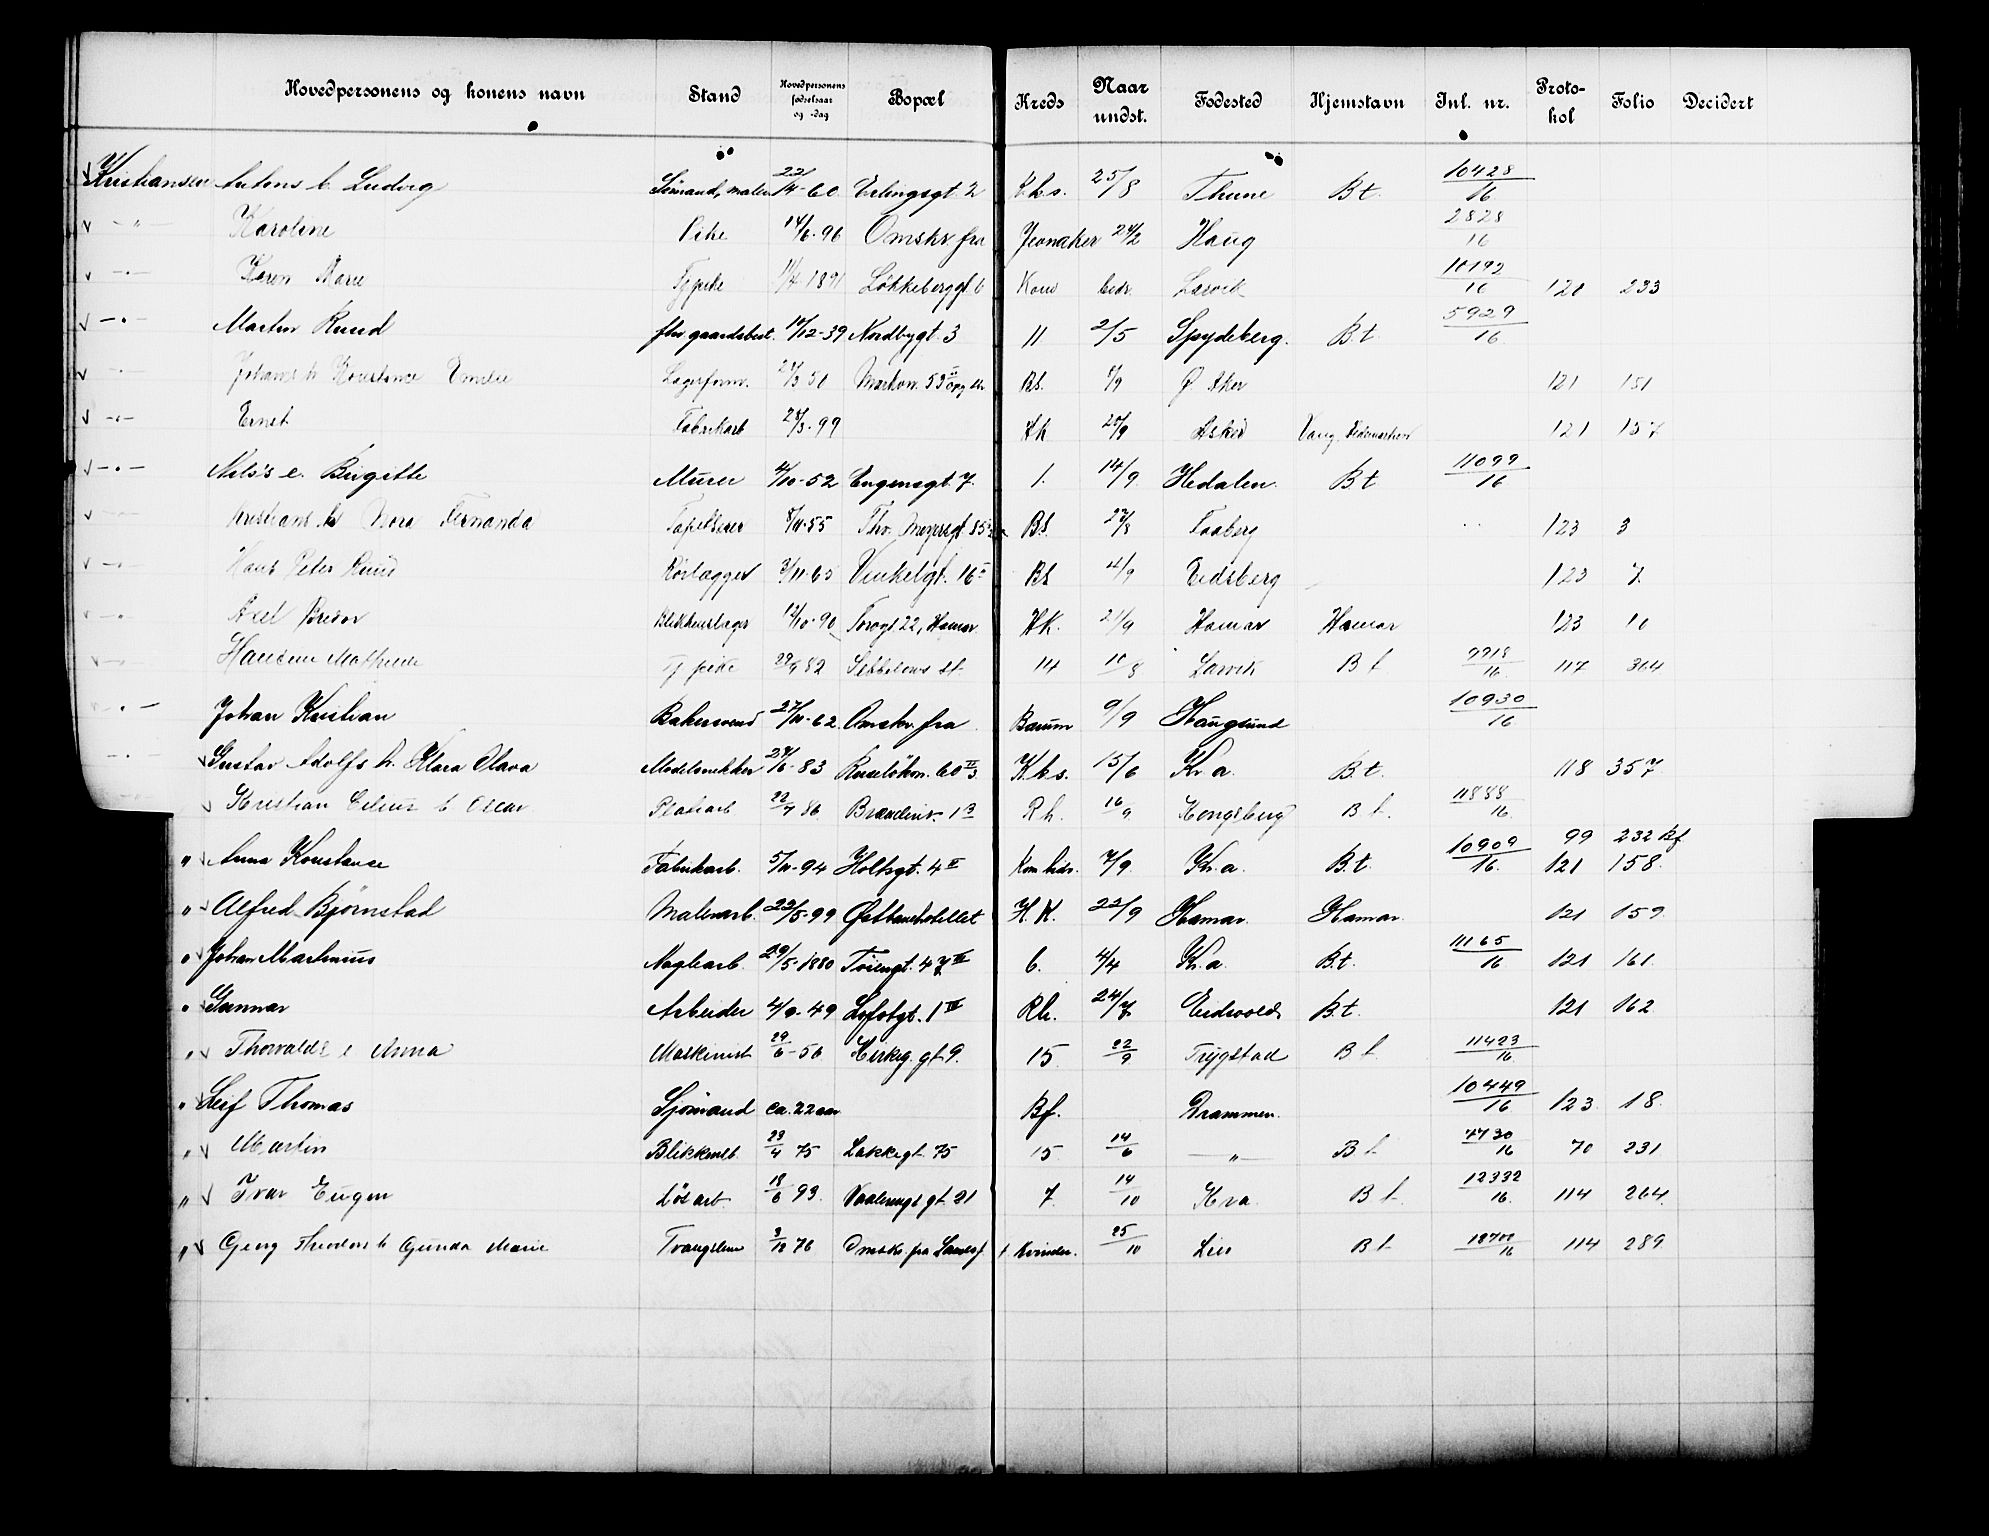 Hovedpersonens og konens navn Stand Hovedpersonens fødselsaar og -dag Bopæl Kreds Naar undst. Fødested Hjemstavn Inl. nr. Protokol Folio Decidert
Kristiansen Antons b. Ludvig Sømand, maler 22/4-60 Erlingsgt. 2 K.k.s. 25/8 Thune B t. 10428/16
-"- Karoline Pike 14/6-96 Omskr fra Jevnaker 24/2 Haug 2828/16
-"- Karen Marie Tj pike 1/4 1891 Løkkeberggt. 6 Kom hedr. Larvik 10192/16 121 233
-"- Martin Ruud fhv gaardsbest. 10/12-39 Nordbygt. 3 11 2/5 Spydeberg. B.t. 5929/16
-"- Johans h Konstance Emilie Lagerform. 51 Markvn. 53 Bs. /9 Ø Aker 121 151
-"- Ernst Fabrikarb 2/3-99 H.K 20/9 Asker Vang Hedemarken 121 157
-"- Nils's e. Birgitte Murer 4/10-52 Eugensgt. 7. 1. 14/9 Hedalen. B t. 11099/16
-"- Kristians h Nora Fernanda Tapetserer 8/11-55 Thv. Meyersgt. 85 B.S. 27/8 Faaberg 123 3
-"- Hans Peter Ruud Rørlægger 3/11-65 Vinkelgt. 16 BS 4/9 Eidsberg 123 7.
-"- Axel Bredor Blikkenslager 12/10-90 Torvgt 22, Hamar H.K. 21/9 Hamar Hamar 123 10
-"- Hansine Mathilde Tj pike 29/9 82 14 10/8 Larvik B t 9918/16 117 364
-"- Johan Kristian Bakersvend 27/10-62 Omskr. fra Bærum 9/9 Haugsund 10930/16
-"- Gustav Adolfs h. Klara Olava Modelsnekker 24/6-83 Ruseløkvn. 60 II/3 K.k.s. 15/6 Kr.a. B.t. 118 357
Kristian Eilius b Oscar Platearb 22/7 86 1 B R h. 16/9 Kongsberg B.t. 11888/16
" Anna Konstanse Fabrikarb. 5/11-94 Holtsgt. 4 II Kom. hedr. 7/9 Kr.a. B.t. 10909/16 99 232 Bf
121 158.
" Alfred Bjørnstad Malerarb. 23/5-99 Østbanehotellet H.K. 22/9 Hamar. Hamar. 121 159
" Johan Martinius Naglearb. 29/5-1880 Tøiengt. 47 IV 6. 4/4 Kr.a. B.t. 11165/16 121 161.
" Gunnar Arbeider 4/9-49 Lofotgt. 1 IV Rh. 24/7 Eidsvold B.t. 121 162.
" Thorvalds e Anna Maskinist 29/6-56 Herkig. gt 9. 15 22/9 Trygstad B t. 11423/16
" Leif Thomas Sjømand ca. 22 aar Bf. Drammen. 10449/16 123. 18.
" Martin Blikkensl. 23/4 75 Lakkegt. 75 15 14/6 -"- B t 7730/16 70 231
" Ivar Eugen Løs arb. 18/6 93. Vaalerengs gt. 21 7. 14/10 Kra B t. 12332/16 114 264.
" Georg Theodors h Gunda Marie Tvangslem 3/12 76 Omsk. fra Landsf. f. Kvinder. 25/10 Lier B t. 12700/16 114 289